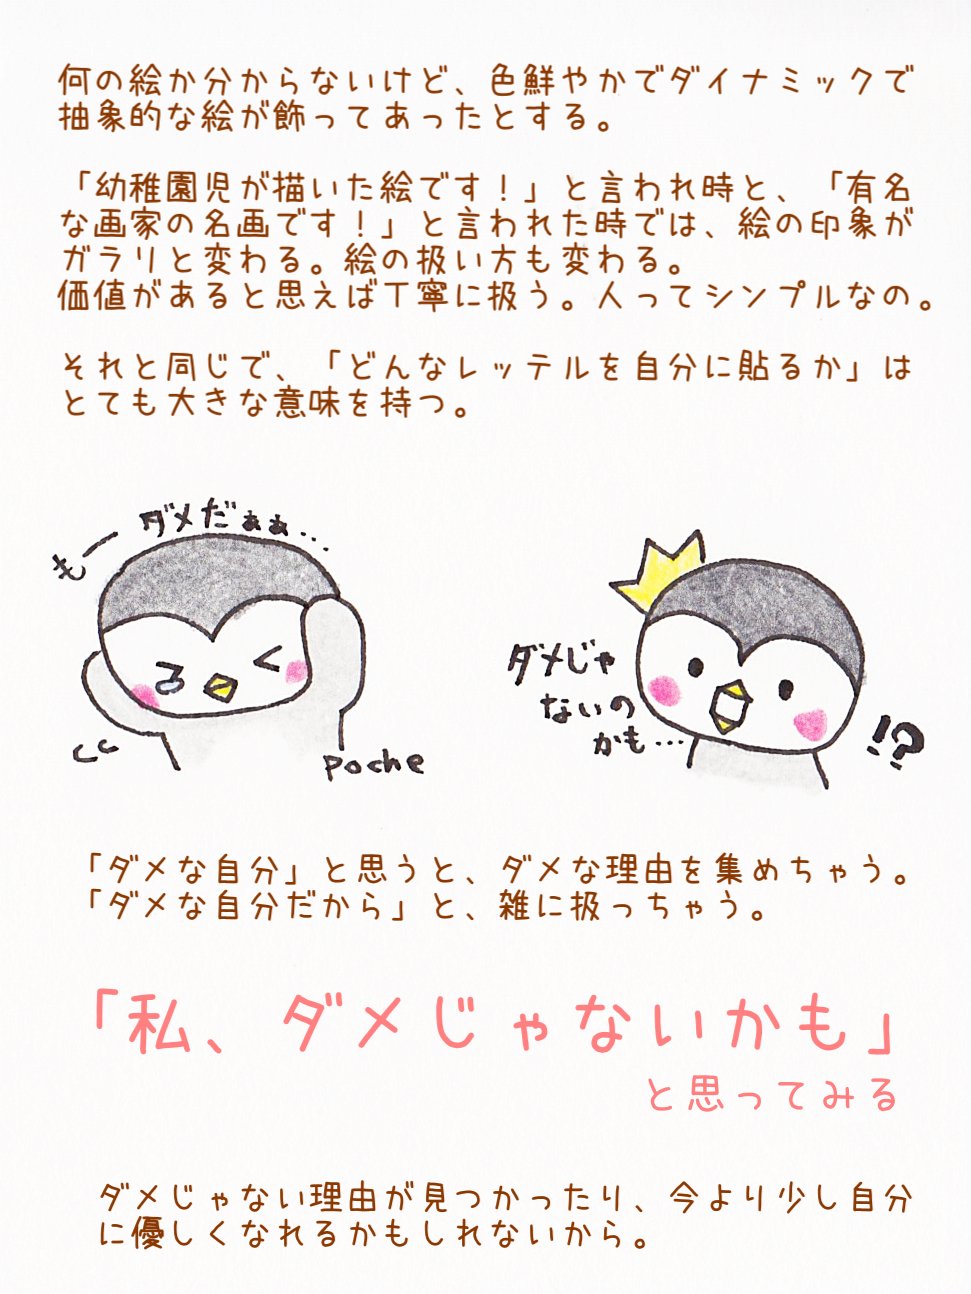 何の絵か分からないけど、色鮮やかでダイナミックで
抽象的な絵が飾ってあったとする。
「幼稚園児が描いた絵です！」と言われ時と、「有名
な画家の名画です！」と言われた時では、絵の印象が
ガラリと変わる。絵の扱い方も変わる。
価値があると思えば丁寧に扱う。人ってシンプルなの。
それと同じで、「どんなレッテルを自分に貼るか」は
とても大きな意味を持つ。
もーダメだぁぁ...
poche
ダメじゃ
ないの
かも...
!?
「ダメな自分」と思うと、ダメな理由を集めちゃう。
「ダメな自分だから」と、雑に扱っちゃう。
「私、ダメじゃないかも」
と思ってみる
ダメじゃない理由が見つかったり、今より少し自分
に優しくなれるかもしれないから。